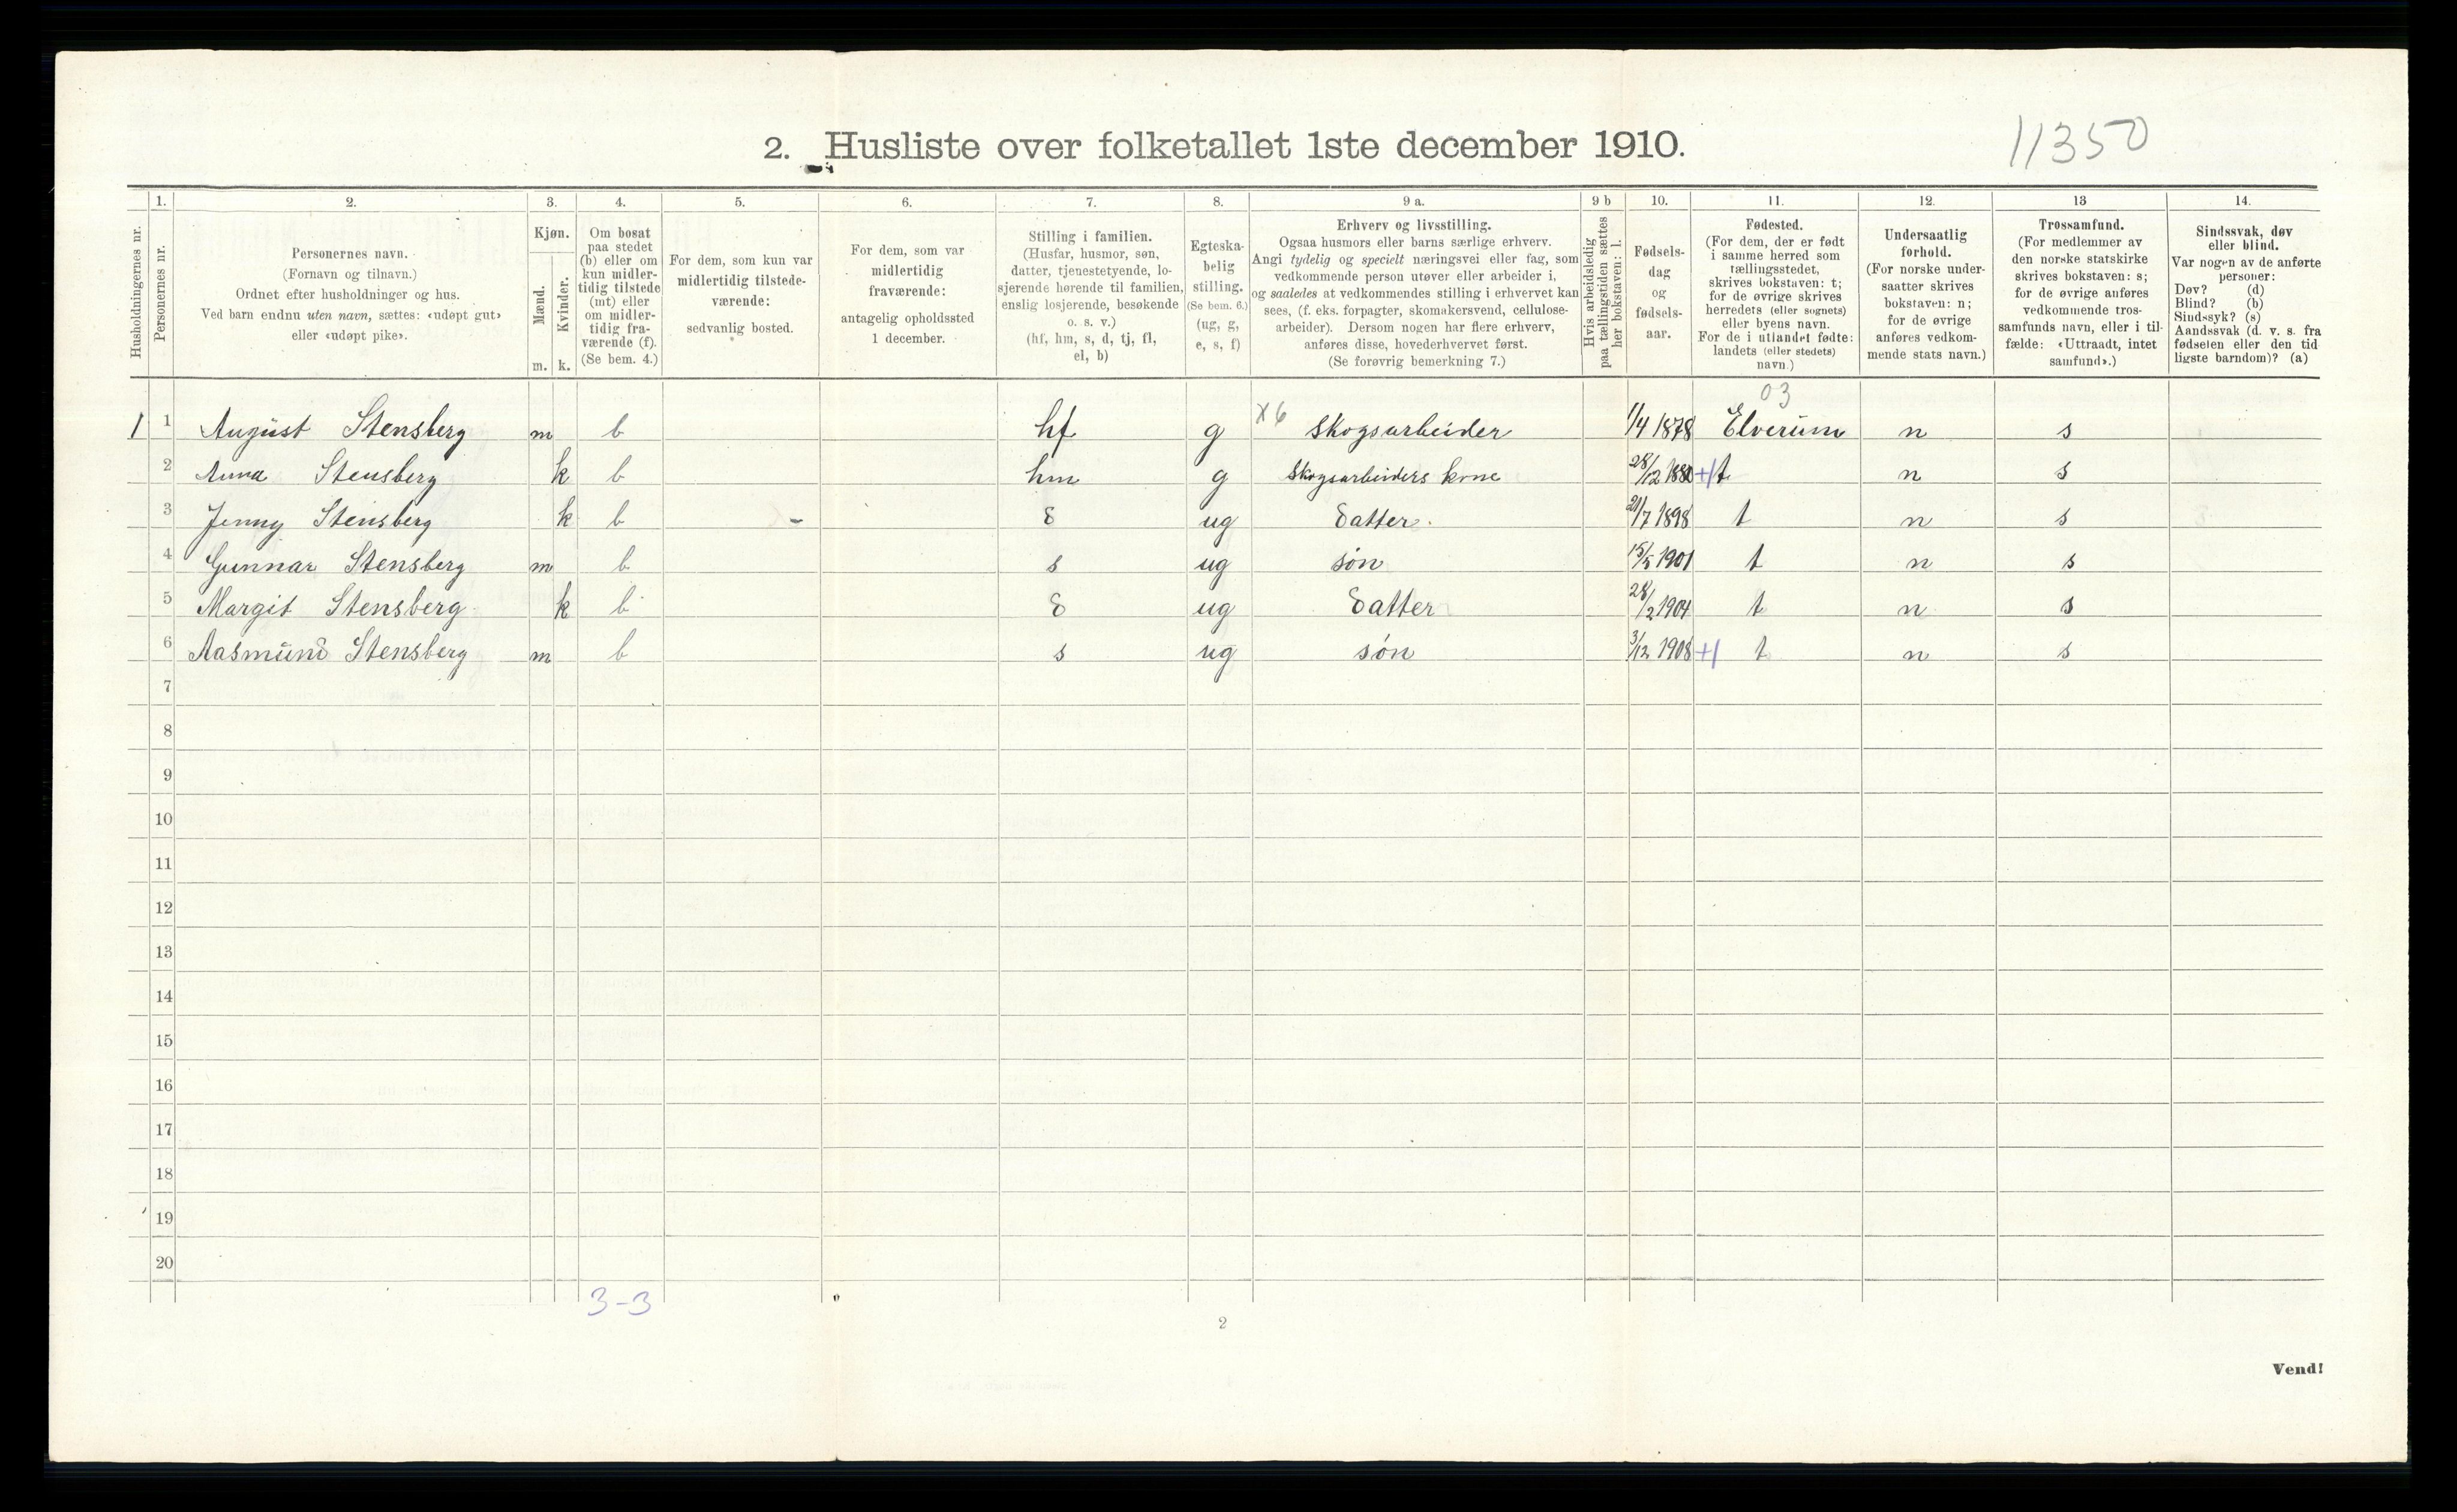 2. Husliste over folketallet 1ste december 1910.
11350
Husholdningernes nr.
1.
Personernes nr.
2.
Personernes navn.
(Fornavn og tilnavn.)
Ordnet efter husholdninger og hus.
Ved barn endnu uten navn, sættes: «udøpt gut»
eller «udøpt pike».
3.
Kjøn.
Mænd.
Kvinder.
m. k.
4.
Om bosat
paa stedet
(b) eller om
kun midler-
tidig tilstede
(mt) eller
om midler-
tidig fra-
værende (f).
(Se bem. 4.)
5.
For dem, som kun var
midlertidig tilstede-
værende:
sedvanlig bosted.
6.
For dem, som var
midlertidig
fraværende:
antagelig opholdssted
1 december.
7.
Stilling i familien.
(Husfar, husmor, søn,
datter, tjenestetyende, lo-
sjerende hørende til familien,
enslig losjerende, besøkende
o. s. v.)
(hf, hm, s, d, tj, fl,
el, b)
8.
Egteska-
belig
stilling.
(Se bem. 6.)
(ug, g,
e, s, f)
9 a.
Erhverv og livsstilling.
Ogsaa husmors eller barns særlige erhverv.
Angi tydelig og specielt næringsvei eller fag, som
vedkommende person utøver eller arbeider i,
og saaledes at vedkommendes stilling i erhvervet kan
sees, (f. eks. forpagter, skomakersvend, cellulose-
arbeider). Dersom nogen har flere erhverv,
anføres disse, hovederhvervet først.
(Se forøvrig bemerkning 7.)
9 b
Hvis arbeidsledig
paa tællingstiden sættes
her bokstaven: l.
10.
Fødsels-
dag
og
fødsels-
aar.
11.
Fødested.
(For dem, der er født
i samme herred som
tællingsstedet,
skrives bokstaven: t;
for de øvrige skrives
herredets (eller sognets)
eller byens navn.
For de i utlandet fødte:
landets (eller stedets)
navn.)
12.
Undersaatlig
forhold.
(For norske under-
saatter skrives
bokstaven: n;
for de øvrige
anføres vedkom-
mende stats navn.)
13
Trossamfund.
(For medlemmer av
den norske statskirke
skrives bokstaven: s;
for de øvrige anføres
vedkommende tros-
samfunds navn, eller i til-
fælde: «Uttraadt, intet
samfund».)
14.
Sindssvak, døv
eller blind.
Var nogen av de anførte
personer:
Døv? (d)
Blind? (b)
Sindssyk? (s)
Aandssvak (d. v. s. fra
fødselen eller den tid
ligste barndom)? (a)
03
1 1 August Stensberg m b hf g x6 Skogsarbeider 1/4 1878 Elverum n s
2 Anna Stensberg k b hm g Skogsarbeiders kone 28/12 1880 +1 t n s
3 Jenny Stensberg k b - d ug datter. 21/7 1898 t n s
4 Gunnar Stensberg m b s ug søn 15/5 1901 t n s
5 Margit Stensberg k b d ug datter 28/2 1904 t n s
6 Aasmund Stensberg m b s ug søn 3/12 1908 +1 t n s
7
8
9
10
11
12
13
14
15
16
17
18
19
20
3-3
2
Vend!